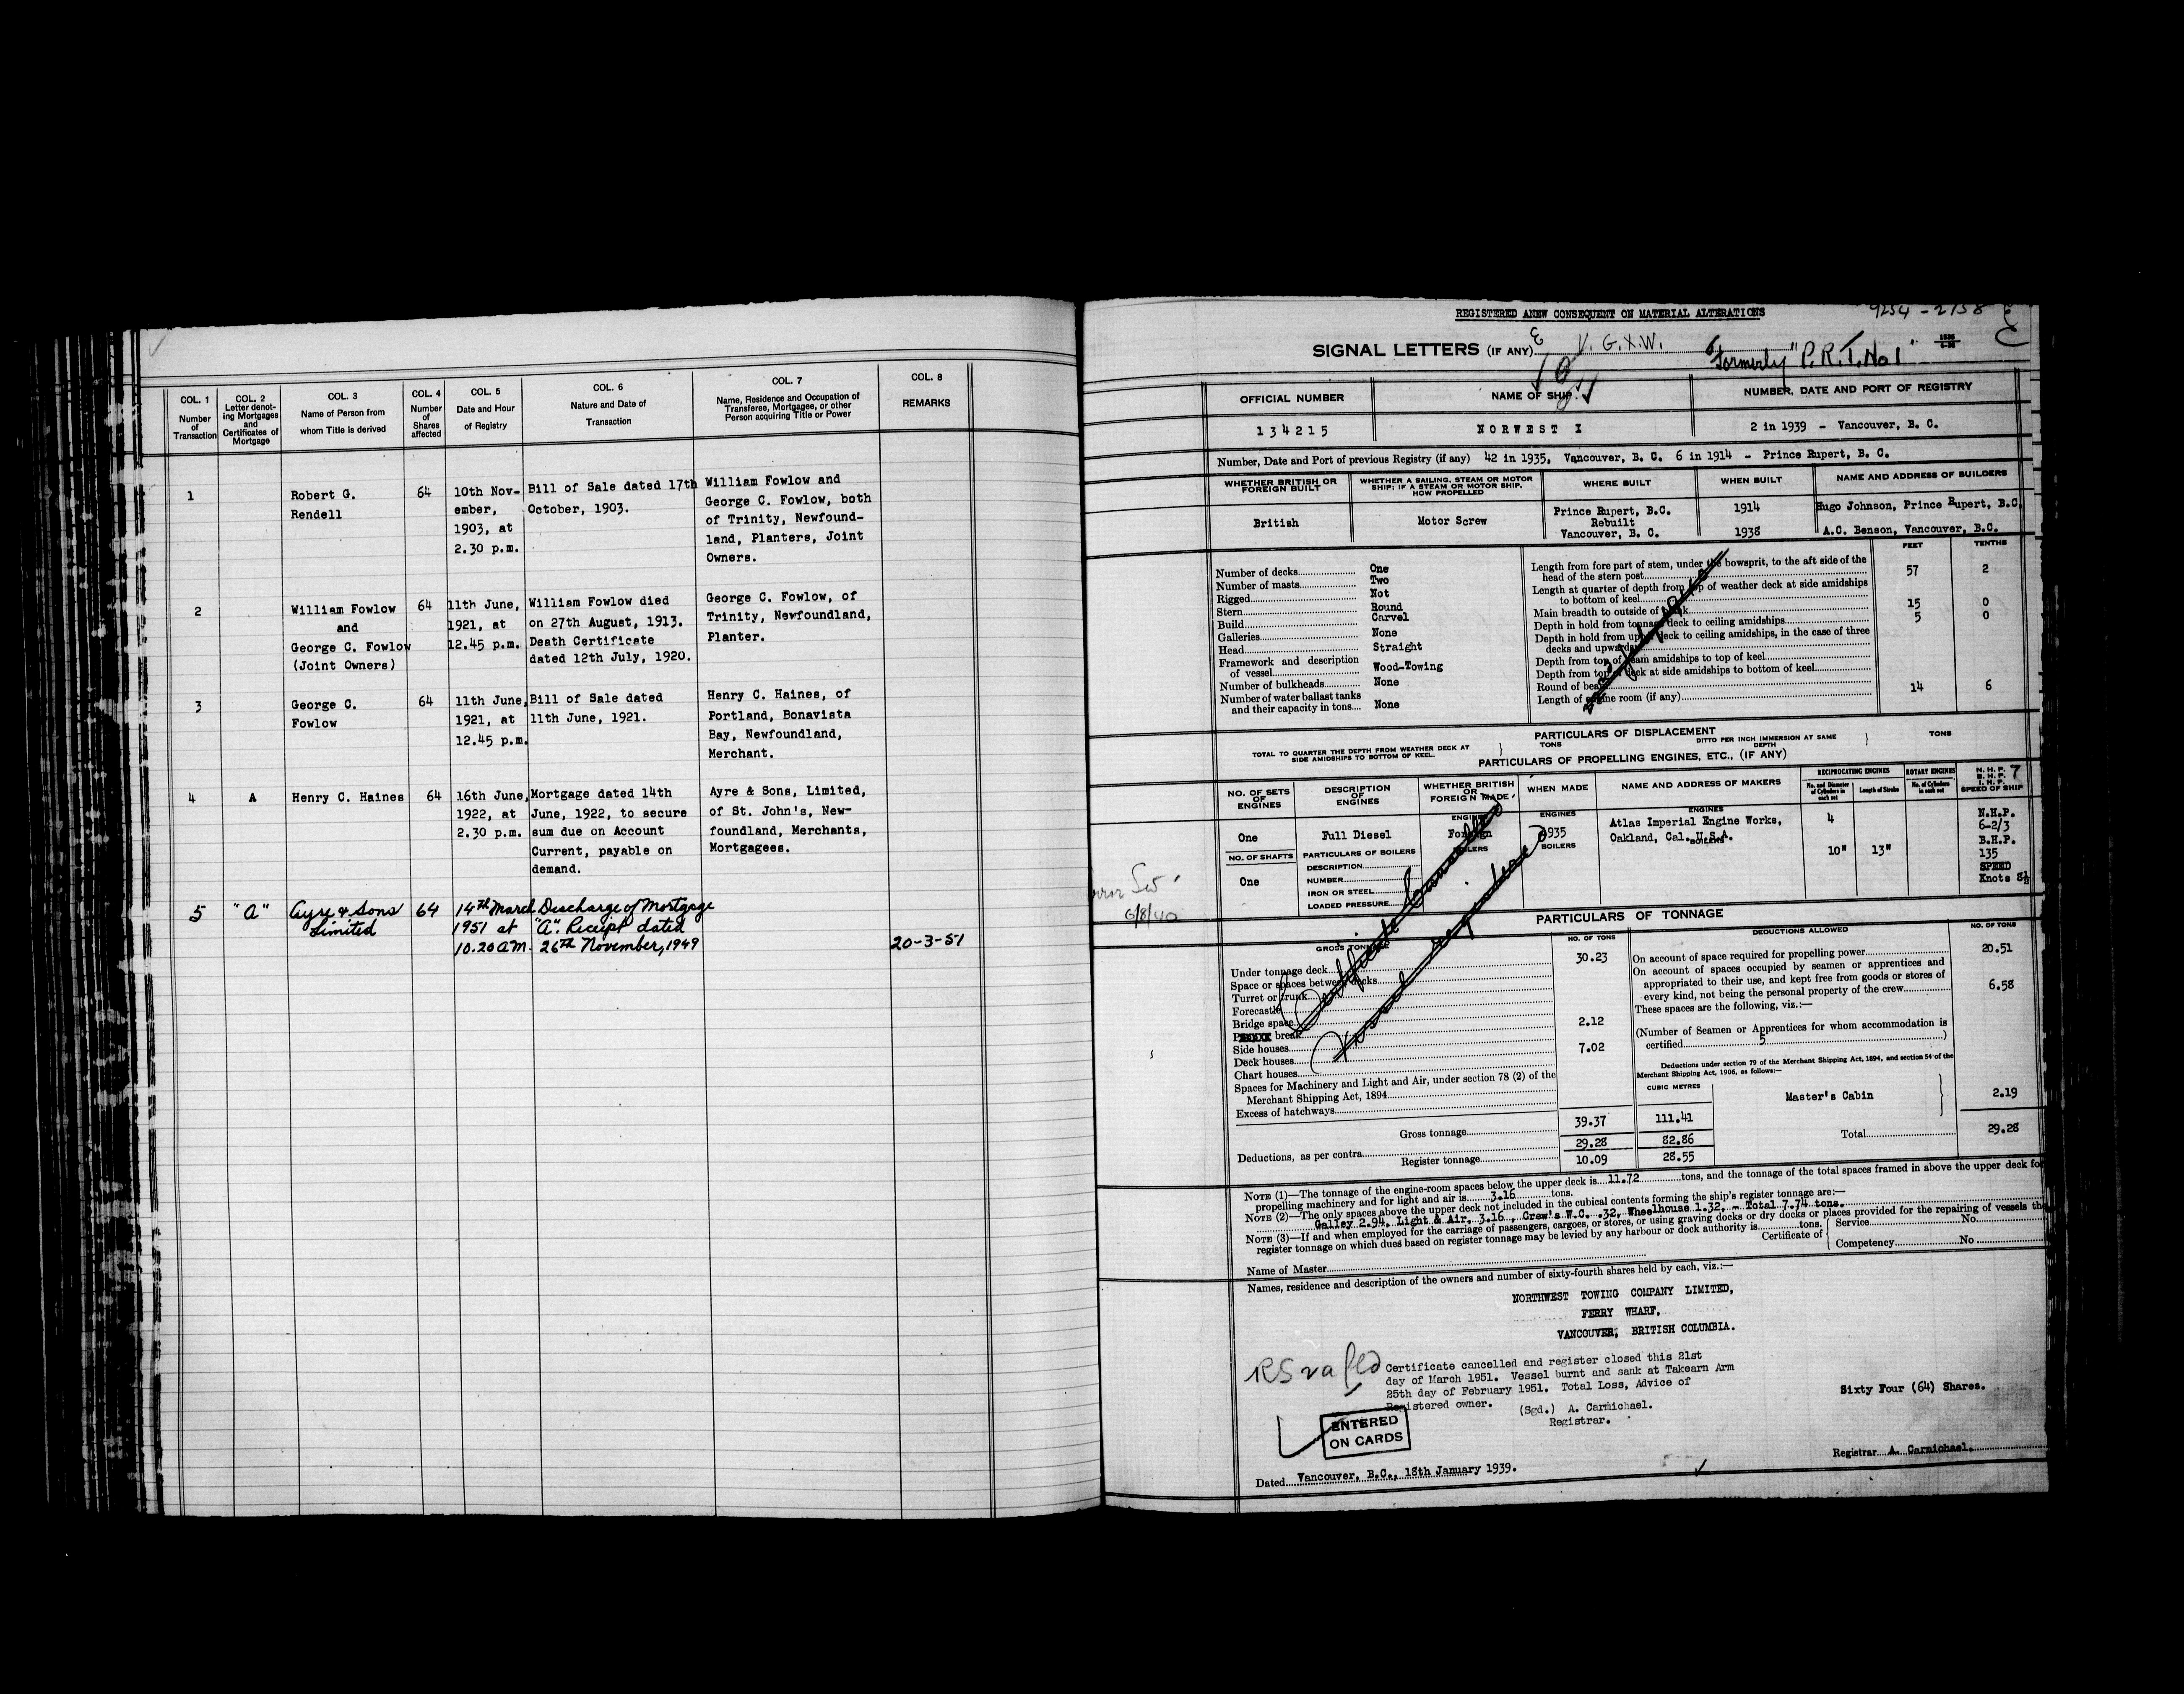 COL. 1
Number
of
Transaction
COL. 2
Letter denot-
ing Mortgages
and
Certificates of
Mortgage
COL. 3
Name of Person from
whom Title is derived
COL. 4
Number
of
Shares
affected
COL. 5
Date and Hour
of Registry
COL. 6
Nature and Date of
Transaction
COL. 7
Name, Residence and Occupation of
Transferee, Mortgagee, or other
Person acquiring Title or Power
COL. 8
REMARKS
1
Robert G.
Rendell
64
10th Nov-
ember,
1903, at
2.30 p.m.
Bill of Sale dated 17th
October, 1903.
William Fowlow and
George C. Fowlow, both
of Trinity, Newfound-
land, Planters, Joint
Owners.
2
William Fowlow
and
George C. Fowlow
(Joint Owners)
64
11th June,
1921, at
12.45 p.m.
William Fowlow died
on 27th August, 1913.
Death Certificate
dated 12th July, 1920.
George C. Fowlow, of
Trinity, Newfoundland,
Planter.
3
George C.
Fowlow
64
11th June,
1921, at
12.45 p.m.
Bill of Sale dated
11th June, 1921.
Henry C. Haines, of
Portland, Bonavista
Bay, Newfoundland,
Merchant.
4
A
Henry C. Haines
64
16th June,
1922, at
2.30 p.m.
Mortgage dated 14th
June, 1922, to secure
sum due on Account
Current, payable on
demand.
Ayre & Sons, Limited,
of St. John's, New-
foundland, Merchants,
Mortgagees.
5
"A"
Ayre & Sons
Limited
64
14th March
1951 at
10.20 AM.
Discharge of Mortgage
"A". Receipt dated
26th November, 1949
20-3-51
REGISTERED ANEW CONSEQUENT ON MATERIAL ALTERATIONS
9254-2158
SIGNAL LETTERS (IF ANY) V. G. X. W.
Formerly "P.R.T. No 1"
OFFICIAL NUMBER
NAME OF SHIP.
NUMBER, DATE AND PORT OF REGISTRY
134215
NORWEST I
2 in 1939 - Vancouver, B. C.
Number, Date and Port of previous Registry (if any) 42 in 1935, Vancouver, B. C. 6 in 1914 - Prince Rupert, B. C.
WHETHER BRITISH OR
FOREIGN BUILT
WHETHER A SAILING, STEAM OR MOTOR
SHIP; IF A STEAM OR MOTOR SHIP,
HOW PROPELLED
WHERE BUILT
WHEN BUILT
NAME AND ADDRESS OF BUILDERS
British
Motor Screw
Prince Rupert, B.C.
Rebuilt
Vancouver, B. C.
1914
1938
Hugo Johnson, Prince Rupert, B.C.
A.C. Benson, Vancouver, B.C.
Number of decks One
Number of masts Two
Rigged Not
Stern Round
Build Carvel
Galleries None
Head Straight
Framework and description
of vessel Wood-Towing
Number of bulkheads None
Number of water ballast tanks
and their capacity in tons None
FEET
TENTHS
Length from fore part of stem, under the bowsprit, to the aft side of the
head of the stern post 57 2
Length at quarter of depth from top of weather deck at side amidships
to bottom of keel
Main breadth to outside of plank 15 0
Depth in hold from tonnage deck to ceiling amidships 5 0
Depth in hold from upper deck to ceiling amidships, in the case of three
decks and upwards
Depth from top of beam amidships to top of keel
Depth from top of deck at side amidships to bottom of keel
Round of beam
Length of engine room (if any) 14 6
PARTICULARS OF DISPLACEMENT
TOTAL TO QUARTER THE DEPTH FROM WEATHER DECK AT
SIDE AMIDSHIPS TO BOTTOM OF KEEL.
TONS
DITTO PER INCH IMMERSION AT SAME
DEPTH
TONS
PARTICULARS OF PROPELLING ENGINES, ETC., (IF ANY)
NO. OF SETS
OF
ENGINES
DESCRIPTION
OF
ENGINES
WHETHER BRITISH
OR
FOREIGN MADE
WHEN MADE
NAME AND ADDRESS OF MAKERS
RECIPROCATING ENGINES
No. and Diameter
of Cylinders in
each set
Length of Stroke
ROTARY ENGINES
No. of Cylinders
in each set
N. H. P.
B. H. P.
I. H. P.
SPEED OF SHIP
7
One
Full Diesel
ENGINES
Foreign
BOILERS
ENGINES
1935
BOILERS
ENGINES
Atlas Imperial Engine Works,
Oakland, Cal. U.S.A.
BOILERS
4
10"
13"
N.H.P.
6-2/3
B.H.P.
135
SPEED
Knots 8½
NO. OF SHAFTS
One
PARTICULARS OF BOILERS
DESCRIPTION
NUMBER
IRON OR STEEL
LOADED PRESSURE
6/8/40
Certificate Cancelled
Vessel registered
PARTICULARS OF TONNAGE
GROSS TONNAGE
NO. OF TONS
DEDUCTIONS ALLOWED
NO. OF TONS
Under tonnage deck 30.23
Space or spaces between decks
Turret or trunk
Forecastle
Bridge space
break 2.12
Side houses
Deck houses 7.02
Chart houses
Spaces for Machinery and Light and Air, under section 78 (2) of the
Merchant Shipping Act, 1894
Excess of hatchways
Gross tonnage 39.37 111.41
Deductions, as per contra 29.28 82.86
Register tonnage 10.09 28.55
On account of space required for propelling power 20.51
On account of spaces occupied by seamen or apprentices and
appropriated to their use, and kept free from goods or stores of
every kind, not being the personal property of the crew 6.58
These spaces are the following, viz.:—
(Number of Seamen or Apprentices for whom accommodation is
certified 5 )
Deductions under section 79 of the Merchant Shipping Act, 1894, and section 54 of the
Merchant Shipping Act, 1906, as follows:—
CUBIC METRES
Master's Cabin 2.19
Total 29.28
NOTE (1)—The tonnage of the engine-room spaces below the upper deck is 11.72 tons, and the tonnage of the total spaces framed in above the upper deck for
propelling machinery and for light and air is 3.16 tons.
NOTE (2)—The only spaces above the upper deck not included in the cubical contents forming the ship's register tonnage are:—
Galley 2.94, Light & Air, 3.16, Crew's W.C. .32, Wheelhouse 1.32, - Total 7.74 tons.
NOTE (3)—If and when employed for the carriage of passengers, cargoes, or stores, or using graving docks or dry docks or places provided for the repairing of vessels the
register tonnage on which dues based on register tonnage may be levied by any harbour or dock authority is tons.
Certificate of
Service No.
Competency No
Name of Master
Names, residence and description of the owners and number of sixty-fourth shares held by each, viz.:—
NORTHWEST TOWING COMPANY LIMITED,
FERRY WHARF,
VANCOUVER, BRITISH COLUMBIA.
Certificate cancelled and register closed this 21st
day of March 1951. Vessel burnt and sank at Takearn Arm
25th day of February 1951. Total Loss, Advice of
Registered owner. (Sgd.) A. Carmichael.
Registrar.
Sixty Four (64) Shares.
ENTERED
ON CARDS
Registrar A. Carmichael.
Dated Vancouver, B.C., 18th January 1939.